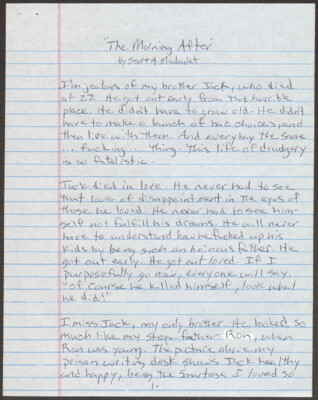 "The Morning After"
by Scott A.
I'm jealous of my brother Jack, who died
at 22. He got out early from this horrible
place. He didn't have to grow old. He didn't
have to make a bunch of bad choices, and
then live with them. And everyday the same
... fucking ... thing. This life of drudgery
is so fatalistic.
Jack died in love. He never had to see
that look of disappointment in the eyes of
those he loved. He never had to see him-
self not fulfill his dreams. He will never
have to understand how he fucked up his
kids by being such an heinous father. He
got out early. He got out loved. If I
purposefully go now, everyone will say,
"Of course he killed himself, look what
he did!"
I miss Jack, my only brother. He looked so
much like my step-father Ron, when
Ron was young. The picture above my
prison writing desk shows Jack healthy
and happy, being the smartass I loved so
1.